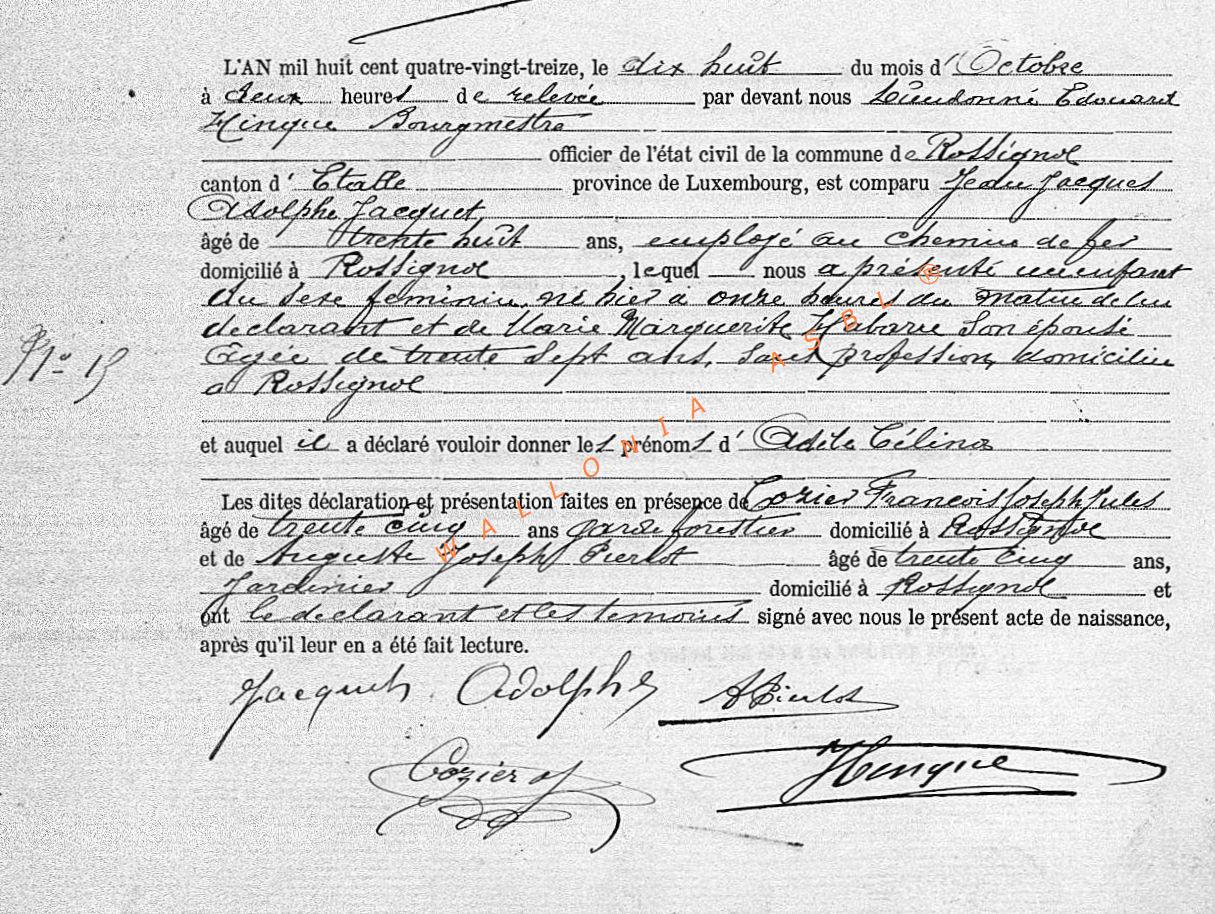 L'AN mil huit cent quatre-vingt-treize, le dix huit du mois d' Octobre
à deux heures de relevée par devant nous Dieudonné Edouard
Hinque Bourgmestre
officier de l'état civil de la commune de Rossignol
canton d' Etalle province de Luxembourg, est comparu Jean Jacques
Adolphe Jacquet,
âgé de trente huit ans, employé au chemin de fer
domicilié à Rossignol, lequel nous a présenté un enfant
du sexe feminin, né hier à onze heures du matin de lui
declarant et de Marie Marguerite Habaru son épouse
Agée de trente sept ans, sans profession, domiciliée
a Rossignol
N° 13
et auquel il a déclaré vouloir donner les prénoms d' Adèle Célina
Les dites déclaration et présentation faites en présence de Cozier Francois Joseph Jules
âgé de trente cinq ans garde forestier domicilié à Rossignol
et de Auguste Joseph Pierlot âgé de trente cinq ans,
Jardinier domicilié à Rossignol et
ont le declarant et les temoins signé avec nous le présent acte de naissance,
après qu'il leur en a été fait lecture.
Jacquet Adolphe APierlot
Cozier Hinque
WALLONIA ASBL ®